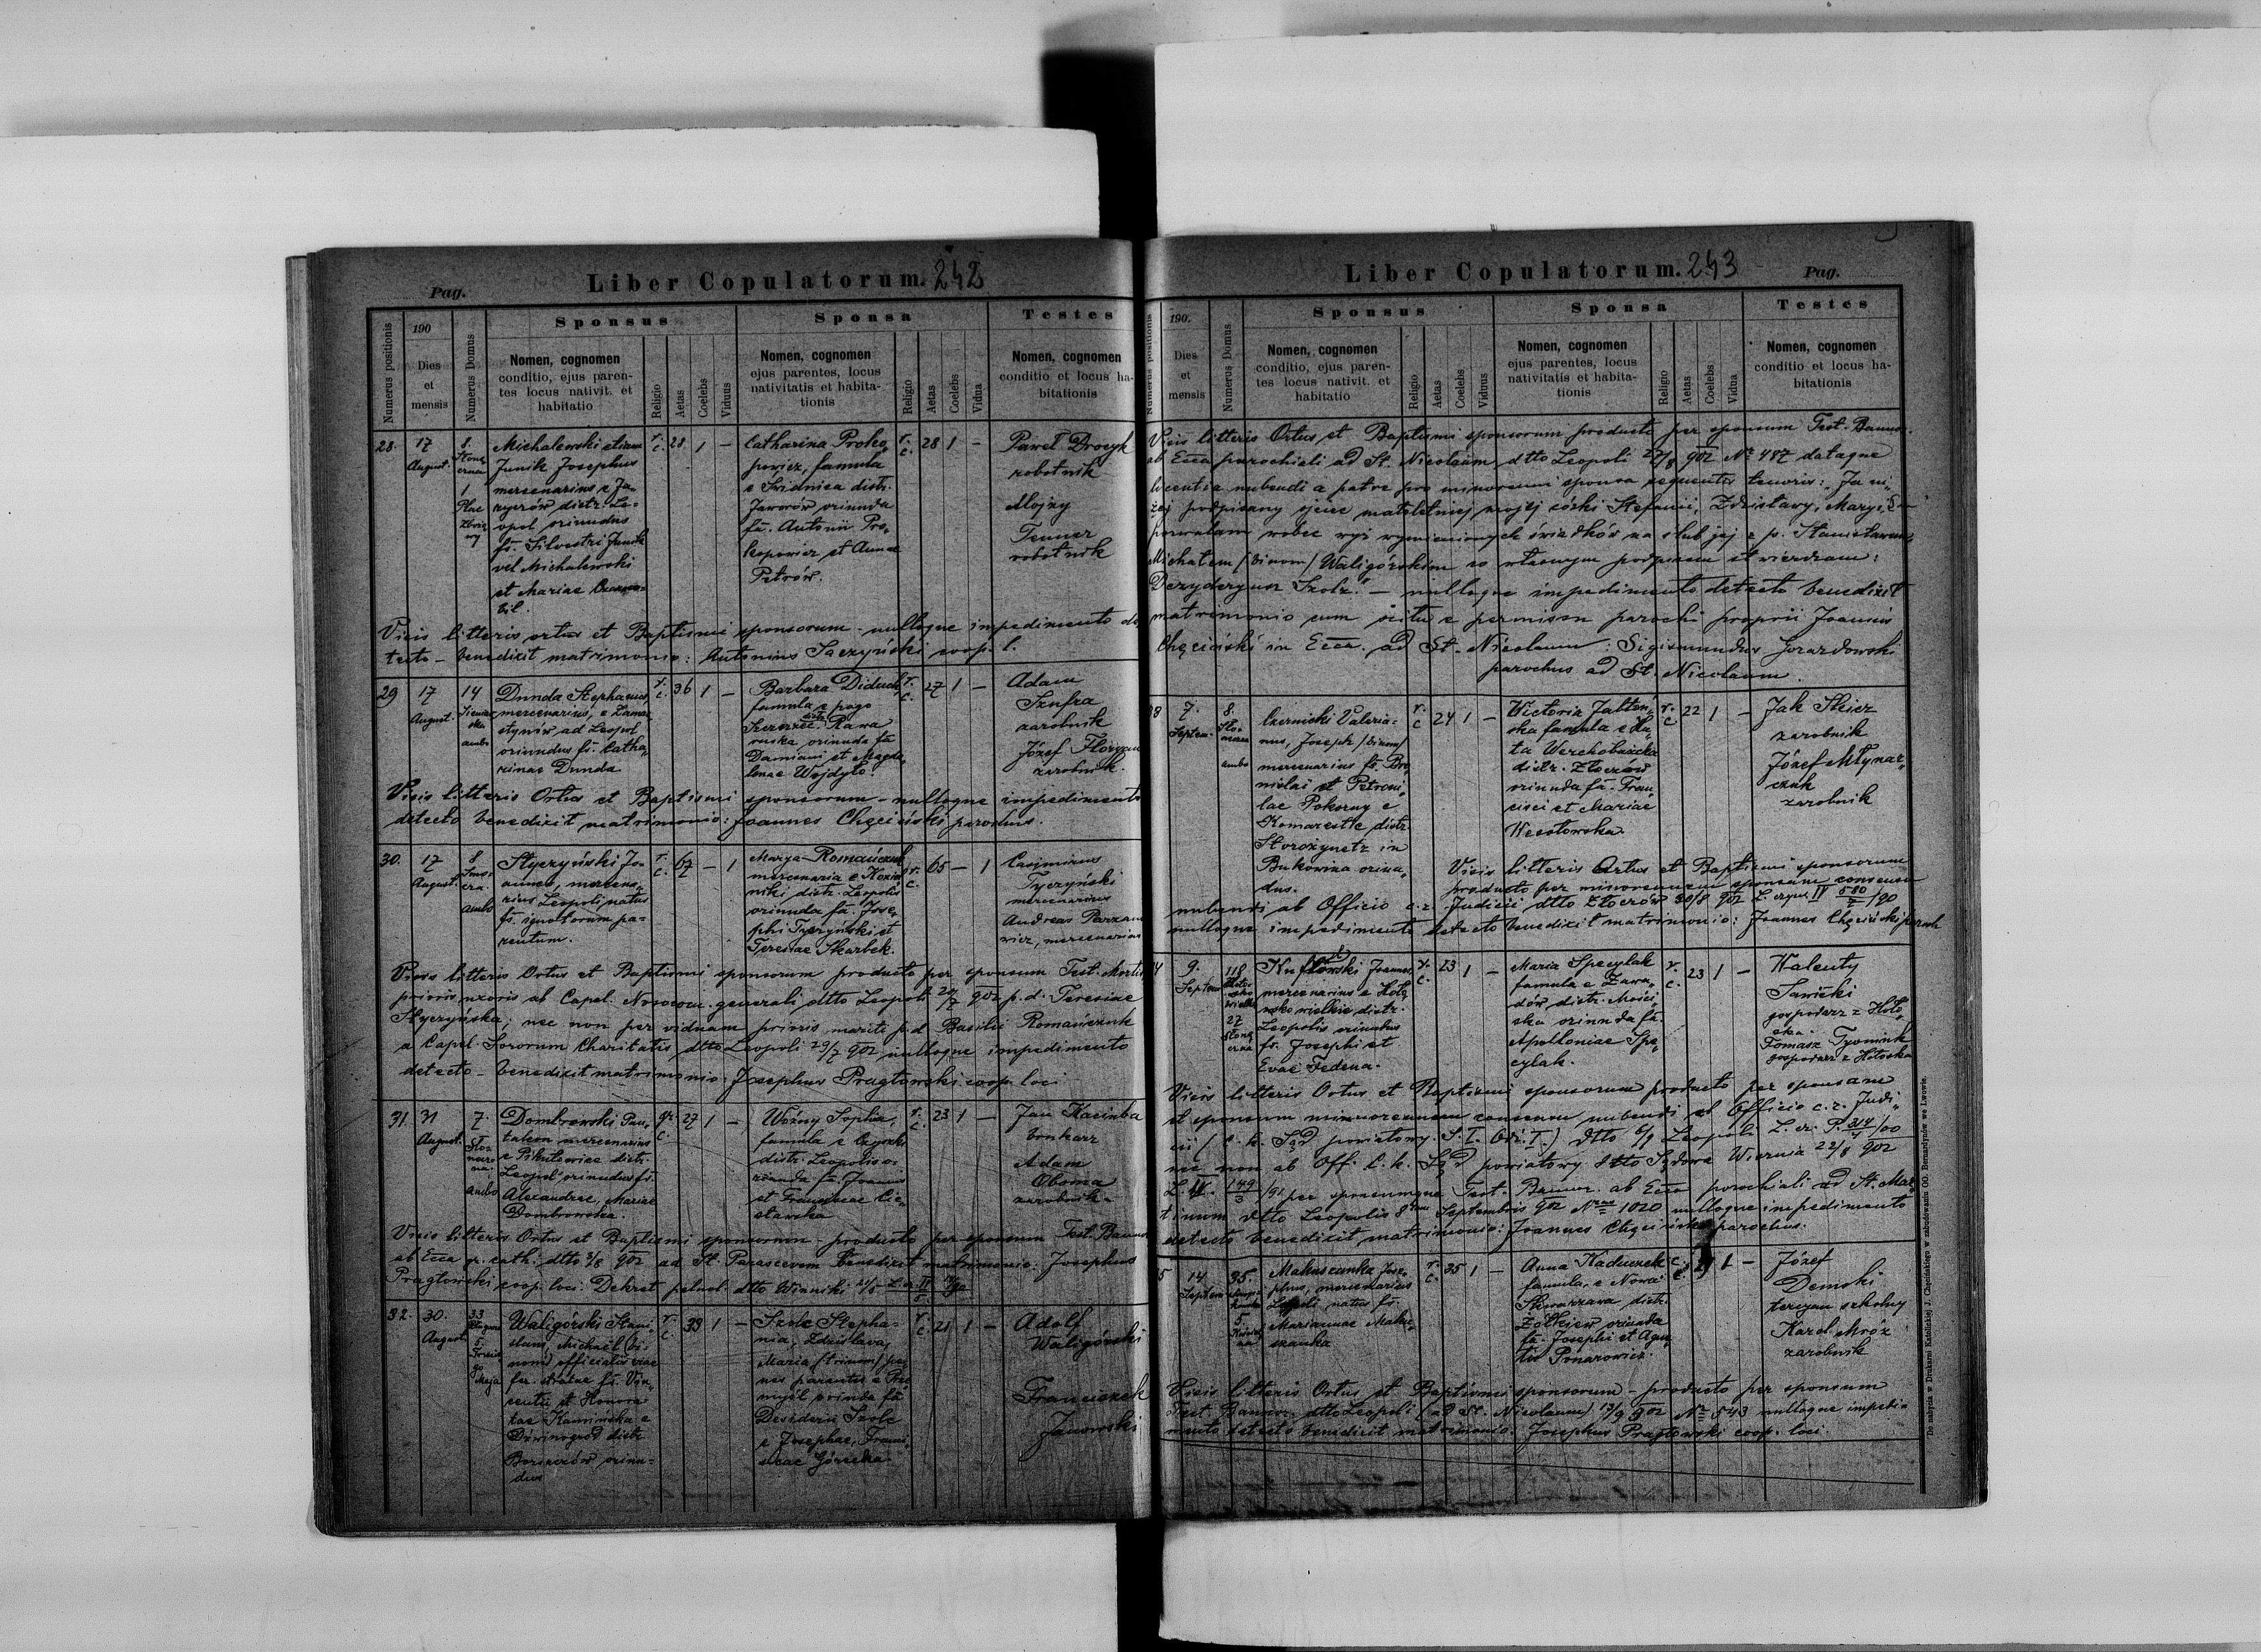 Pag.
Liber Copulatorum. 242
Numerus positionis
190
Dies
et
mensis
Numerus Domus
Sponsus
Nomen, cognomen
conditio, ejus paren-
tes locus nativit. et
habitatio
Religio
Aetas
Coelebs
Viduus
Sponsa
Nomen, cognomen
ejus parentes, locus
nativitatis et habita-
tionis
Religio
Aetas
Coelebs
Vidua
Testes
Nomen, cognomen
conditio et locus ha-
bitationis
28. 17 August. 8.
1 Plac
Michalewski etiam
Junik Josephus
mercenarius e Ja-
distr. Le-
opol oriundus
fs. Silvestri Junik
vel Michalewski
et Mariae
r. c. 28 1 –
Catharina Proko-
powicz, famula
e Świdnica distr.
Jaworów oriunda
fa. Antonii Pro-
kopowicz et Annae
Petrów.
r. c. 28 1 –
Paweł Drozyk
robotnik
Mojzy
Tenner
robotnik
Visis litteris ortus et Baptismi sponsorum – nulloque impedimento de-
tecto – benedixit matrimonio: Antonius Saczyński coop. l.
29 17 August. 14
ambo
Dunda Stephanus
mercenarius, e Zama-
stynów ad Leopol
oriundus fs. Catha-
rinae Dunda
r. c. 36 1 –
Barbara Diduch,
famula e pago
Szczerzec distr. Rawa
ruska oriunda fa
Damiani et Magda-
lenae Wojdyło.
r. c. 27 1 –
Adam
Szufra
zarobnik
Józef Floryan
zarobnik.
Visis litteris Ortus et Baptismi sponsorum – nulloque impedimento
detecto benedixit matrimonio: Joannes Chęciński parochus.
30. 17 August. 8
ambo
Styczyński Jo-
annes, mercena-
rius Leopoli natus
fs. ignotorum pa-
rentum.
r. c. 67 – 1
Marya Romańczuk
mercenaria e Kozie-
niki distr. Leopolis
oriunda fa. Jose-
phi Tyczyński et
Teresiae Skarbek.
r. c. 65 – 1
Casimirus
Tyczyński
mercenarius
Andreas Parzano-
wicz, mercenarius
Visis litteris Ortus et Baptismi sponsorum producto per sponsum Test. Mortis
prioris uxoris ab Capel. Nosocom. generali dtto Leopoli 29/7 902 p. d. Teresiae
Styczyńska; nec non per viduam prioris mariti p. d. Basilii Romańczuk
a Capel. Sororum Charitatis dtto Leopoli 29/7 902 nulloque impedimento
detecto – benedixit matrimonio: Josephus Pragłowski coop. loci
31. 31 August. 7.
ambo
Dombrowski Pan-
taleon mercenarius
e Pikułowice distr.
Leopol oriundus fs.
Alexandrae, Mariae
Dombrowska.
gr. c. 27 1 –
Woźny Sophia,
famula e
distr. Leopolis o-
riunda fa Joannis
et Franciscae Cie-
slawska
r. c. 23 1 –
Jan Kacimba
brukarz
Adam
Oboma
zarobnik.
Visis litteris Ortus et Baptismi sponsorum – producto per sponsum Test. Bannor
ab Ecca gr. cath. dtto 3/8 902 ad St. Parascevem benedixit matrimonio: Josephus
Pragłowski coop. loci. Dekret pełnol. dtto Winniki
32. 30. August 33
5. Trzecie-
go Maja
Waligórski Stani-
slaus, Michaël (bi-
nom) officialis viae
fer. statae fs. Vin-
centii et Honora-
tae Kamińska e
Dźwinogród distr.
Borszczów oriun-
dus
r. c. 33 1 –
Szolc Stepha-
nia, Zdzislava,
Maria (trinom) pe-
nes parentes e Prze-
myśl oriunda fa
Desiderii Szolc
e Josephae, Franci-
scae Górecka.
r. c. 21 1 –
Adolf
Waligórski
Franciszek
Janowski
Liber Copulatorum. 243
Pag.
Numerus positionis
190.
Dies
et
mensis
Numerus Domus
Sponsus
Nomen, cognomen
conditio, ejus paren-
tes locus nativit. et
habitatio
Religio
Aetas
Coelebs
Viduus
Sponsa
Nomen, cognomen
ejus parentes, locus
nativitatis et habita-
tionis
Religio
Aetas
Coelebs
Vidua
Testes
Nomen, cognomen
conditio et locus ha-
bitationis
Visis litteris Ortus et Baptismi sponsorum producto per sponsum Test. Bannor.
ab Ecca parochiali ad St. Nicolaum dtto Leopoli 27/8 902 No 487 dataque
licentia nubendi a patre pro minorenni sponsa sequentis tenoris: „Ja ni-
żej podpisany ojciec małoletniej mojej córki Stefanii, Zdzisławy, Maryi,
pozwalam wobec wyż wymienionych świadków na ślub jej z p. Stanisławem
Michałem (binom) Waligórskim co własnym podpisem stwierdzam:
Dezyderyusz Szolc." – nulloque impedimento detecto benedixit
matrimonio cum scitu e permissu parochi proprii Joannis
Chęciński in Ecca. ad St. Nicolaum: Sigismundus Gorazdowski
parochus ad St. Nicolaum.
7. Septem. 8.
ambo
Czernicki Valeria-
nus, Joseph (binom)
mercenarius fs. Bro-
nislai et Petroni-
lae Pokorny e
Komarestie distr.
Storożynetz in
Bukovina oriun-
dus.
r. c 24 1 –
Victoria Jabłoń-
ska famula e Hu-
ta Werchobuzka
distr. Złoczów
oriunda fa. Fran-
cisci et Mariae
Wesołowska.
r. c 22 1 –
Jak Skicz
zarobnik
Józef Młynar-
czuk
zarobnik
Visis litteris Ortus et Baptismi sponsorum
producto per minorennem sponsam consensu
nubendi ab Officio c. r. Judicii dtto Złoczów 30/8 902 L. czyn. IV 580/7 /90
nulloque impedimento detecto benedixit matrimonio: Joannes Chęciński paroch
9. Septem 118
27
Joannes
mercenarius e Hoło-
sko wielkie distr.
Leopolis oriundus
fs. Josephi et
Evae Fedena.
r. c. 23 1 –
Maria Specylak
famula e Zawa-
dów distr. Mości-
ska oriunda fa.
Apolloniae Spe-
cylak.
r. c. 23 1 –
Walenty
Sawicki
gospodarz z Hoło-
ska.
Tomasz Tyminik
gospodarz z Hołoska
Visis litteris Ortus et Baptismi sponsorum producto per sponsam
et sponsum minorennem consensu nubendi ab Officio c. r. Judi-
cii (c. k. Sąd powiatowy. S. I. Odz. I.) dtto 6/9 Leopoli L. cz. P. 314/4 /00
nec non ab Off. C. k. Sąd powiatowy dtto Sądowa Wisznia 22/8 902
L. IV. 149/3 /91 per sponsumque Test. Bannor. ab Ecca parochiali ad St. Mar-
tinum dtto Leopolis 8 Septembris 902 Nrus 1020 nulloque impedimento
detecto benedixit matrimonio: Joannes Chęciński parochus.
14. Septem 35.
5.
Makuszanka Jose-
phus, mercenarius
Leopoli natus fs.
Mariannae Maku-
szanka
r. c. 35 1 –
Anna Kaduczek
famula, e Nowa
Skwarzawa distr.
Żółkiew oriunda
fa. Josephi et Agne-
tis Ponarowicz.
1 –
Józef
Demski
tercyan szkolny
Karol Mróz
zarobnik
Visis litteris Ortus et Baptismi sponsorum – producto per sponsum
Test. Bannor. dtto Leopoli (ad St. Nicolaum) 13/9 902 No 543 nulloque impedi-
mento detecto benedixit matrimonio: Josephus Pragłowski coop. loci.
Do nabycia w Drukarni Katolickiej J. Chęcińskiego w zabudowaniu OO. Bernardynów we Lwowie.